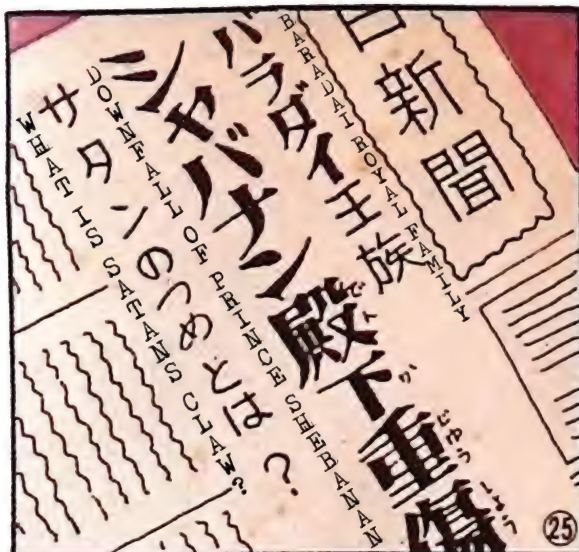 日新聞
BARADAI ROYAL FAMILY
バラダイ王族
シャバナン殿下重傷
DOWNFALL OF PRINCE SHEBANAN
サタンのつめとは？
WHAT IS SATANS CLAW?
㉕